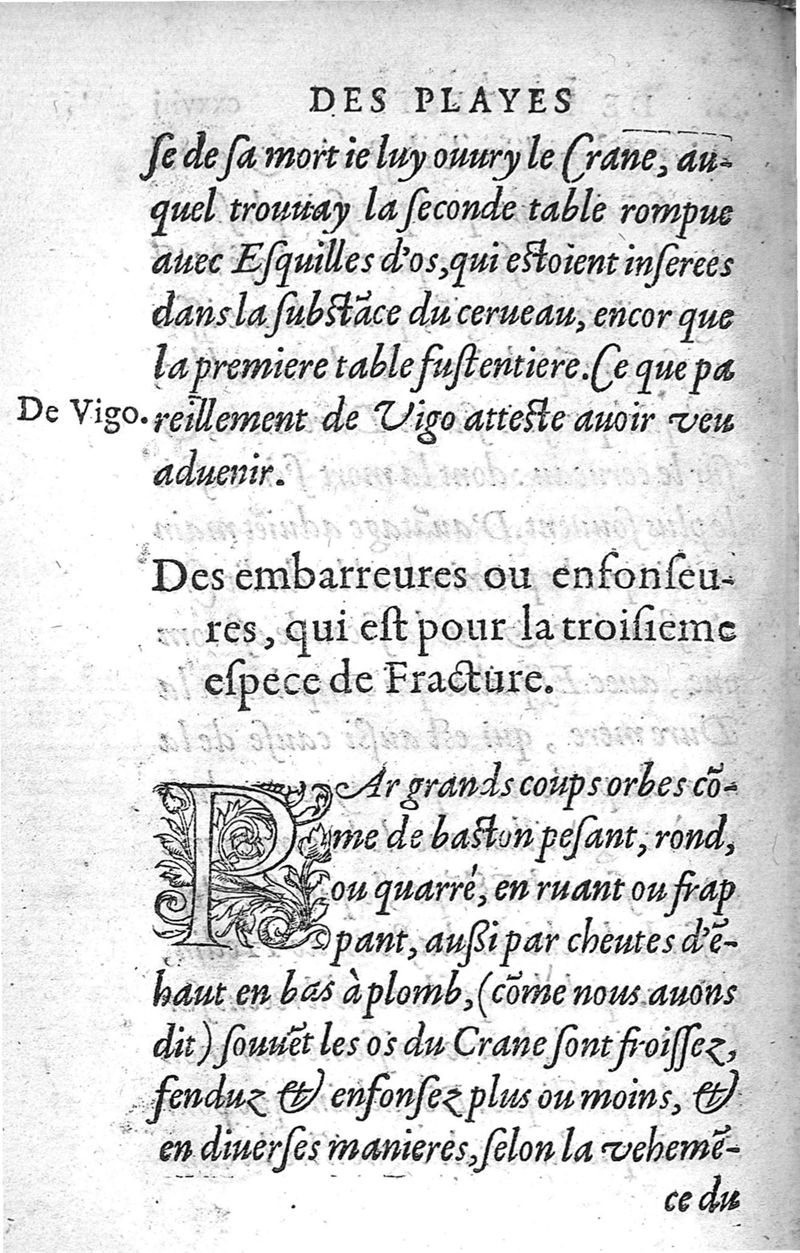 DES PLAYES
ſe de ſa mort ie luy ouury le Crane, au-
quel trouuay la ſeconde table rompue
auec Eſquilles d'os, qui eſtoient inſerees
dans la ſubſtāce du cerueau, encor que
la premiere table fuſt entiere. Ce que pa
De Vigo.
reillement de Vigo atteſte auoir veu
aduenir.
Des embarreures ou enfonſeu-
res, qui eſt pour la troiſieme
eſpece de Fracture.
PAr grands coups orbes cō-
me de baſton peſant, rond,
ou quarré, en ruant ou frap
pant, auſſi par cheutes d'ē-
haut en bas à plomb, (cōme nous auons
dit) ſouuēt les os du Crane ſont froiſſez,
fenduz & enfonſez plus ou moins, &
en diuerſes manieres, ſelon la vehemē-
ce du